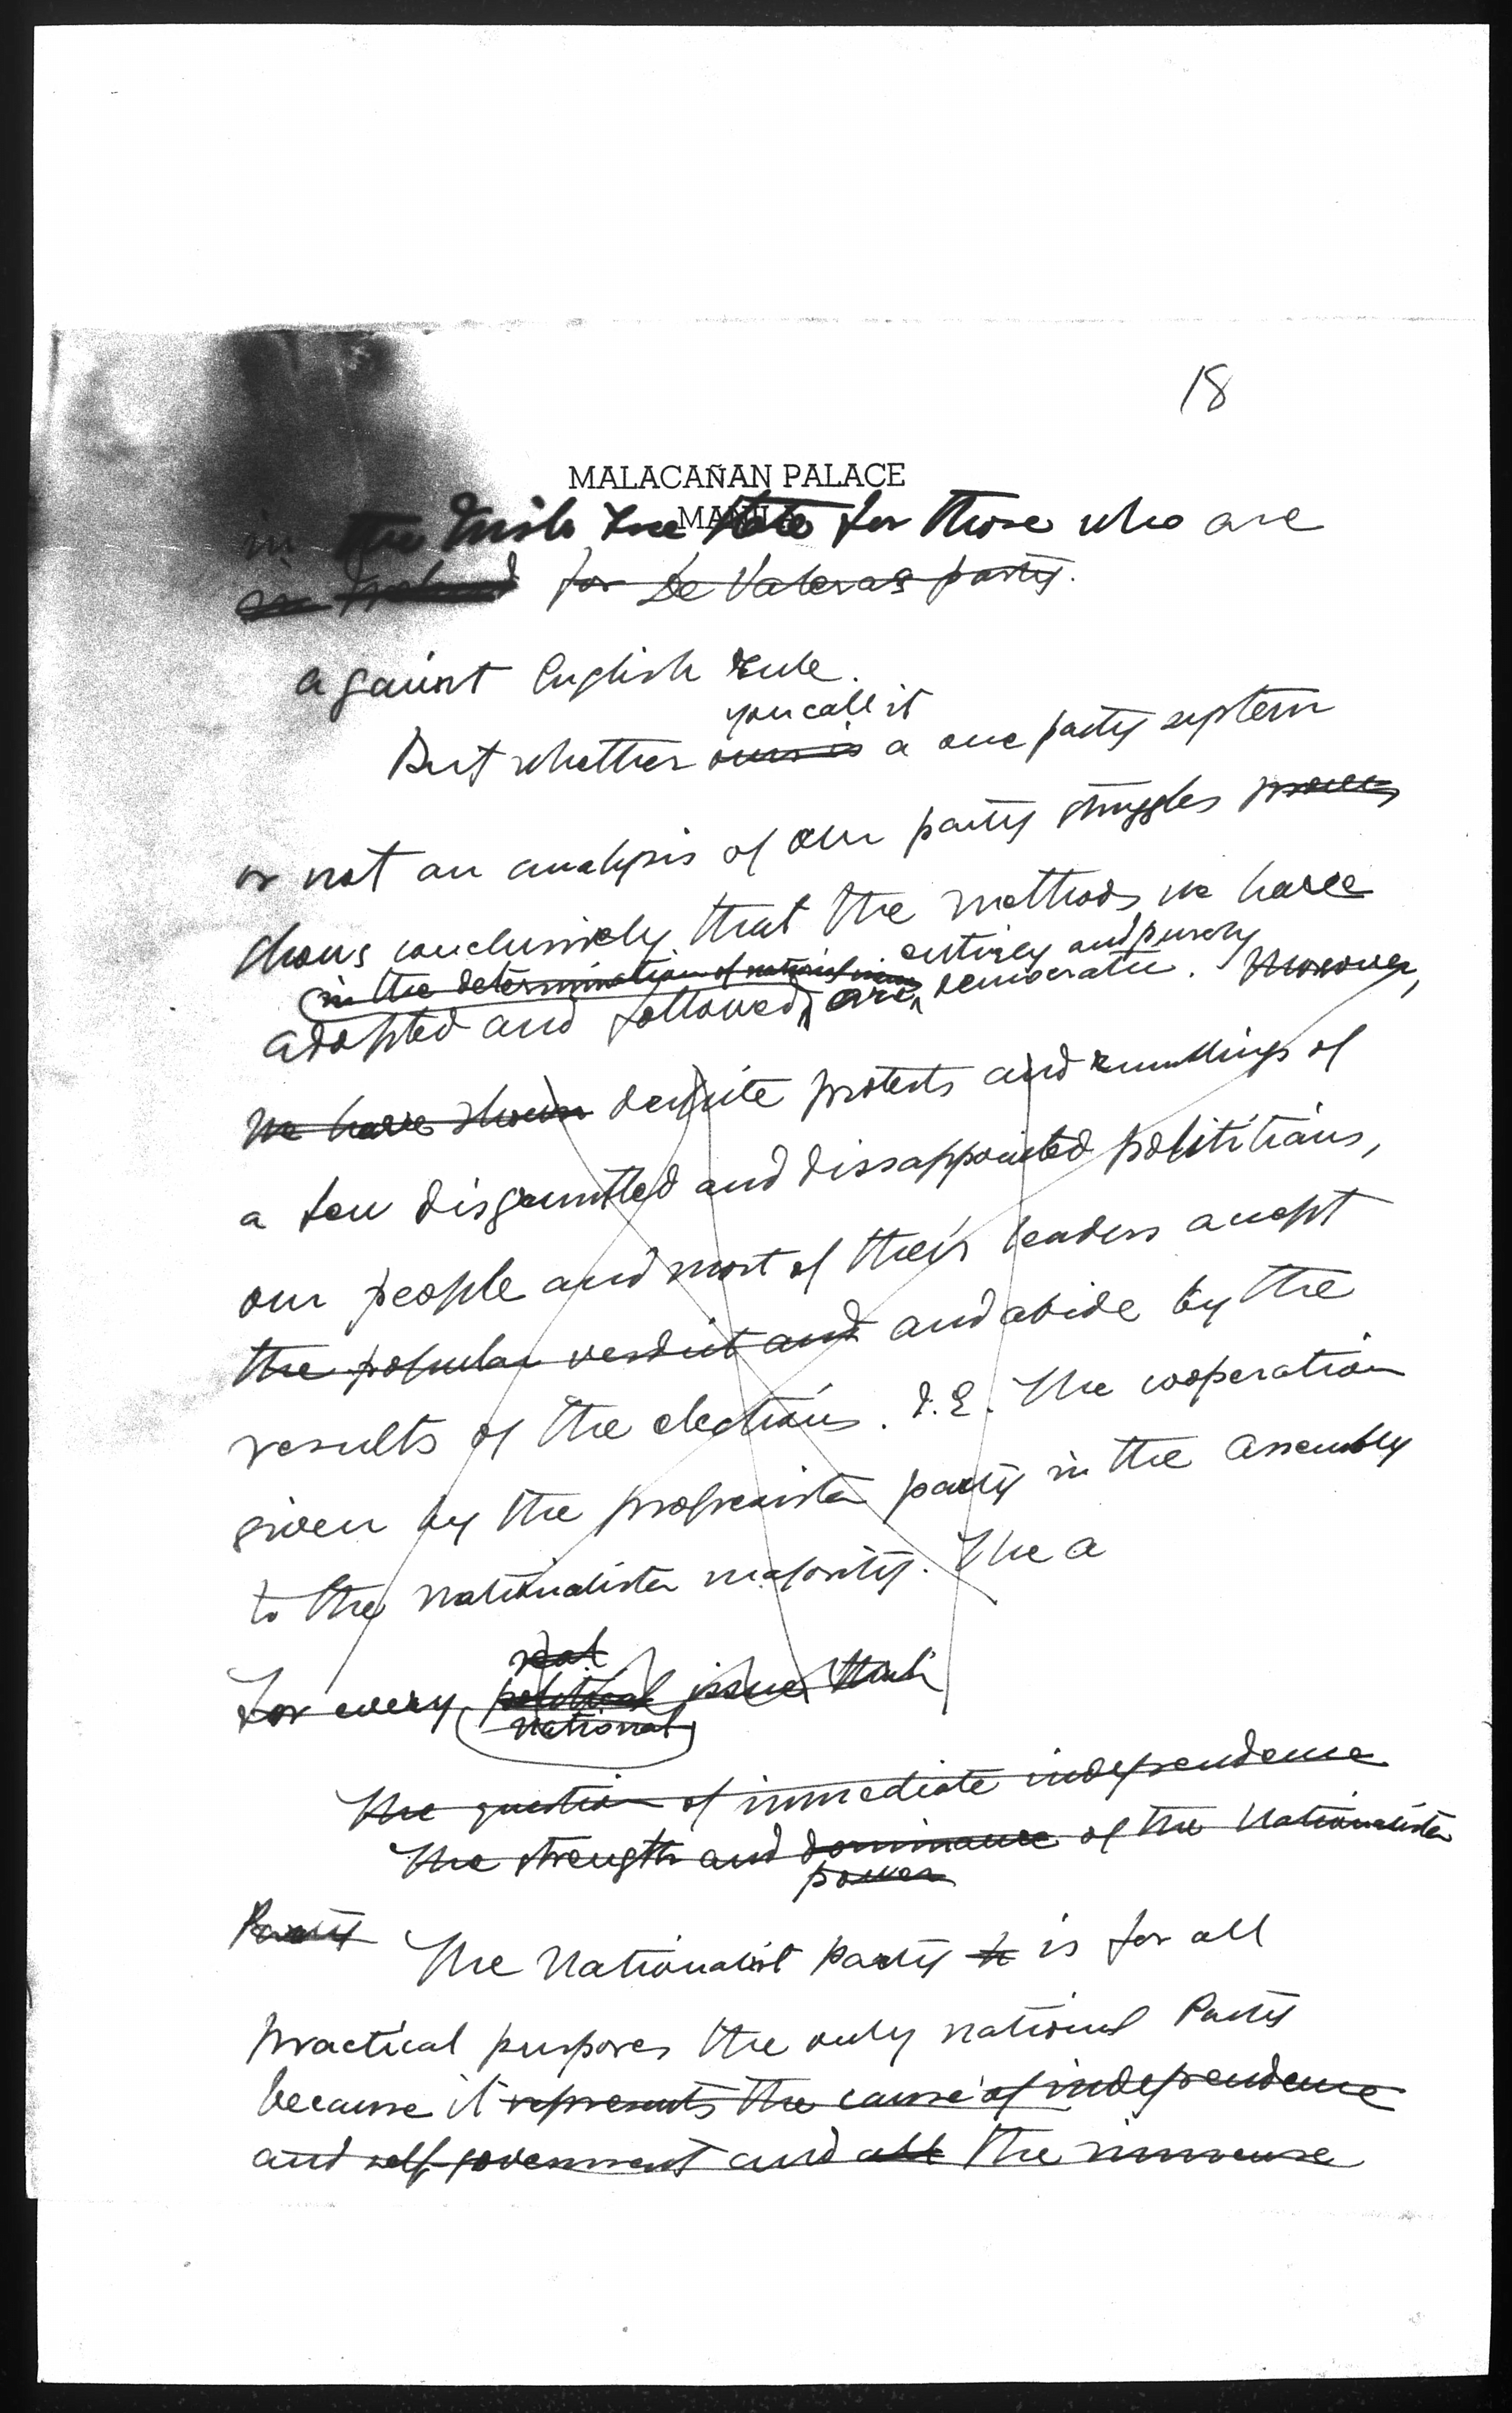 18
MALACAÑAN PALACE
MANILA
in the Irish Free State for those who are
in Ireland for De Valera's party.
against English rule.
you call it
But whether ours is a one party system
or not an analysis of our party struggles
shows conclusively that the methods we have
entirely and purely
in the determination of national issues
adopted and followed, are democratic. Moreover,
we have shown despite protests and rumblings of
a few disgruntled and dissappointed polititians,
our people and most of their leaders accept
the popular verdict and and abide by the
results of the elections. I.E. The cooperation
given by the progresista party in the assembly
to the nationalista majority. The a
real
For every political issue that
national
The question of immediate independence
The strength and dominance of the Nationalista
power
Party The Nationalist Party is for all
practical purposes the only national Party
because it represents the cause of independence
and self-government and all the immense